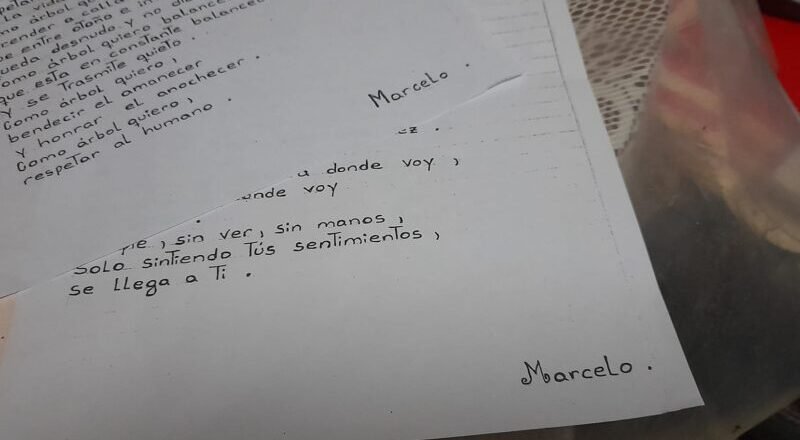 La vida
árbol
entre otoño e
queda desnudo y no
como árbol quiero balance
que esta en constante balanceo
Y se Trasmite quieto.
Como árbol quiero,
bendecir el amanecer
Y honrar el anochecer.
Como árbol quiero,
respetar al humano.
Marcelo.
donde voy,
voy
, sin ver, sin manos,
Solo sintiendo Tús sentimientos,
se llega a Ti.
Marcelo.